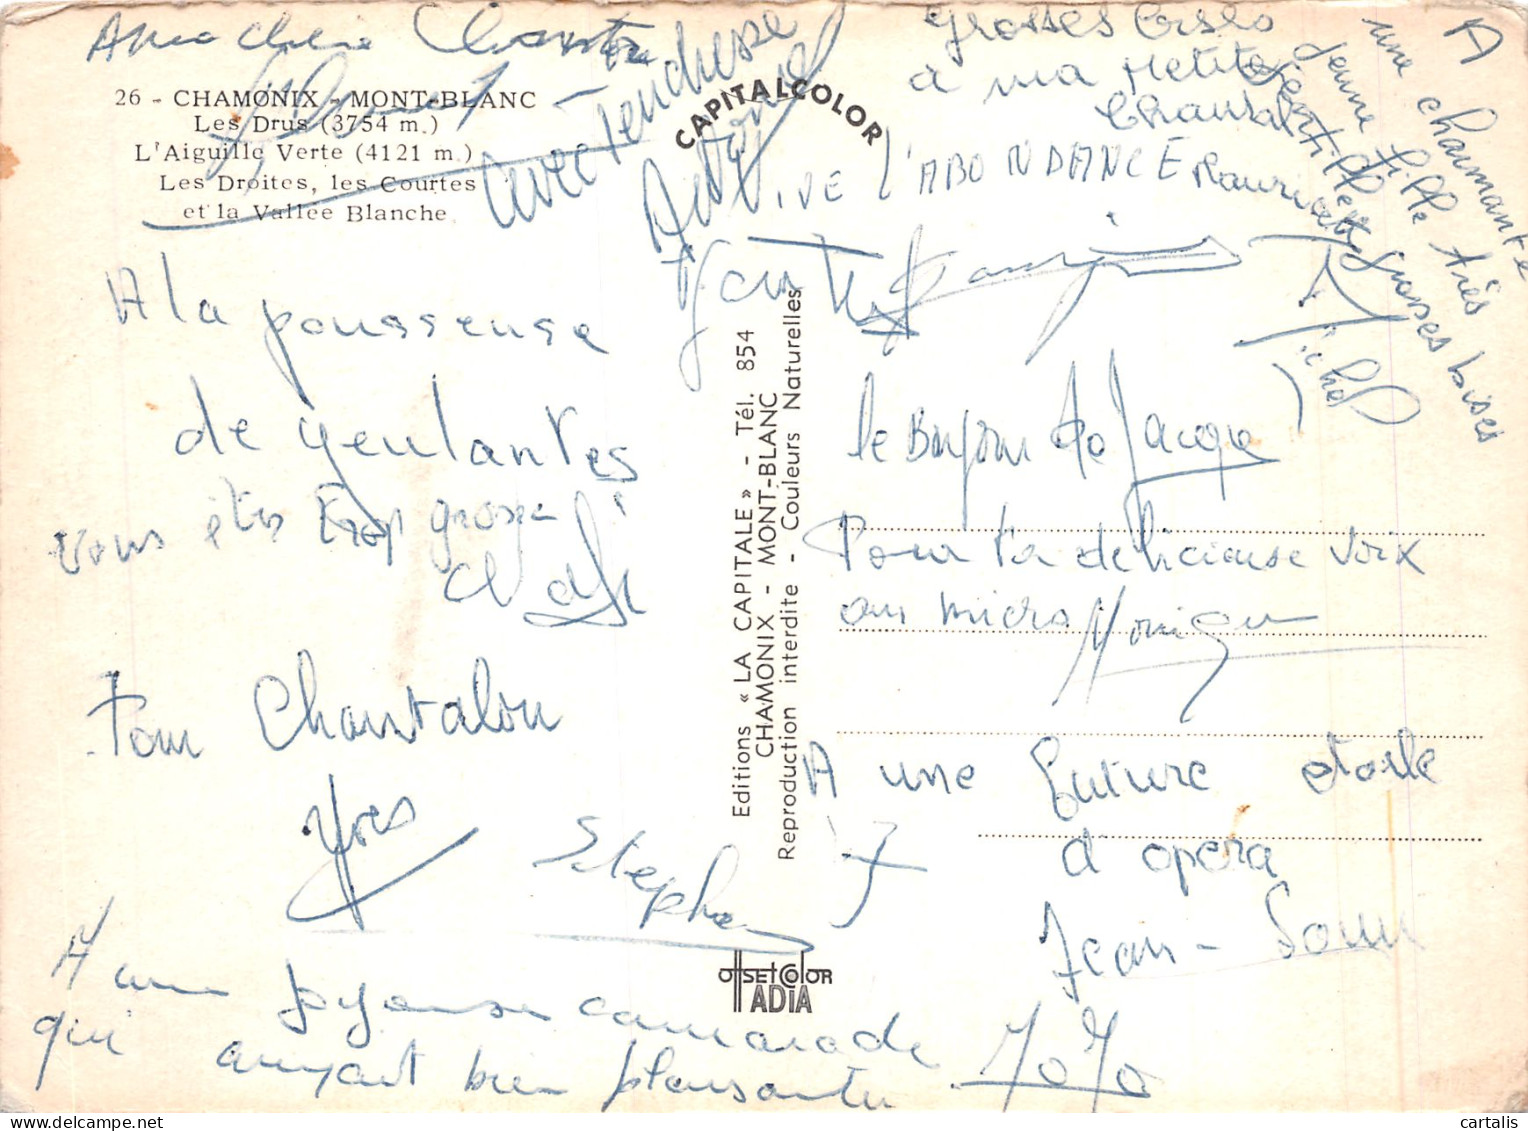 A ma chère Chantal
26 - CHAMONIX - MONT-BLANC
Les Drus (3754 m.)
L'Aiguille Verte (4121 m.)
Les Droites, les Courtes
et la Vallée Blanche
avec Tendresse
A la pousseuse
de geulantes
vous êtes trop grosse
Pour Chantalou
Yves
Stephan
A une joyeuse camarade
qui bien plaisante
JoJo
CAPITALCOLOR
Editions « LA CAPITALE » - Tél. 854
CHAMONIX - MONT-BLANC
Reproduction interdite - Couleurs Naturelles
OffsetColor
ADIA
Grosses
à ma petite
Chantal
VIVE l'ABONDANCE
A
une charmante
jeune fille très
gentille
grosses bises
Michel
le Bonjour de Jacques
Pour ta délicieuse voix
au micro Monique
A une future étoile
d'opéra
Jean-Louis
cartalis